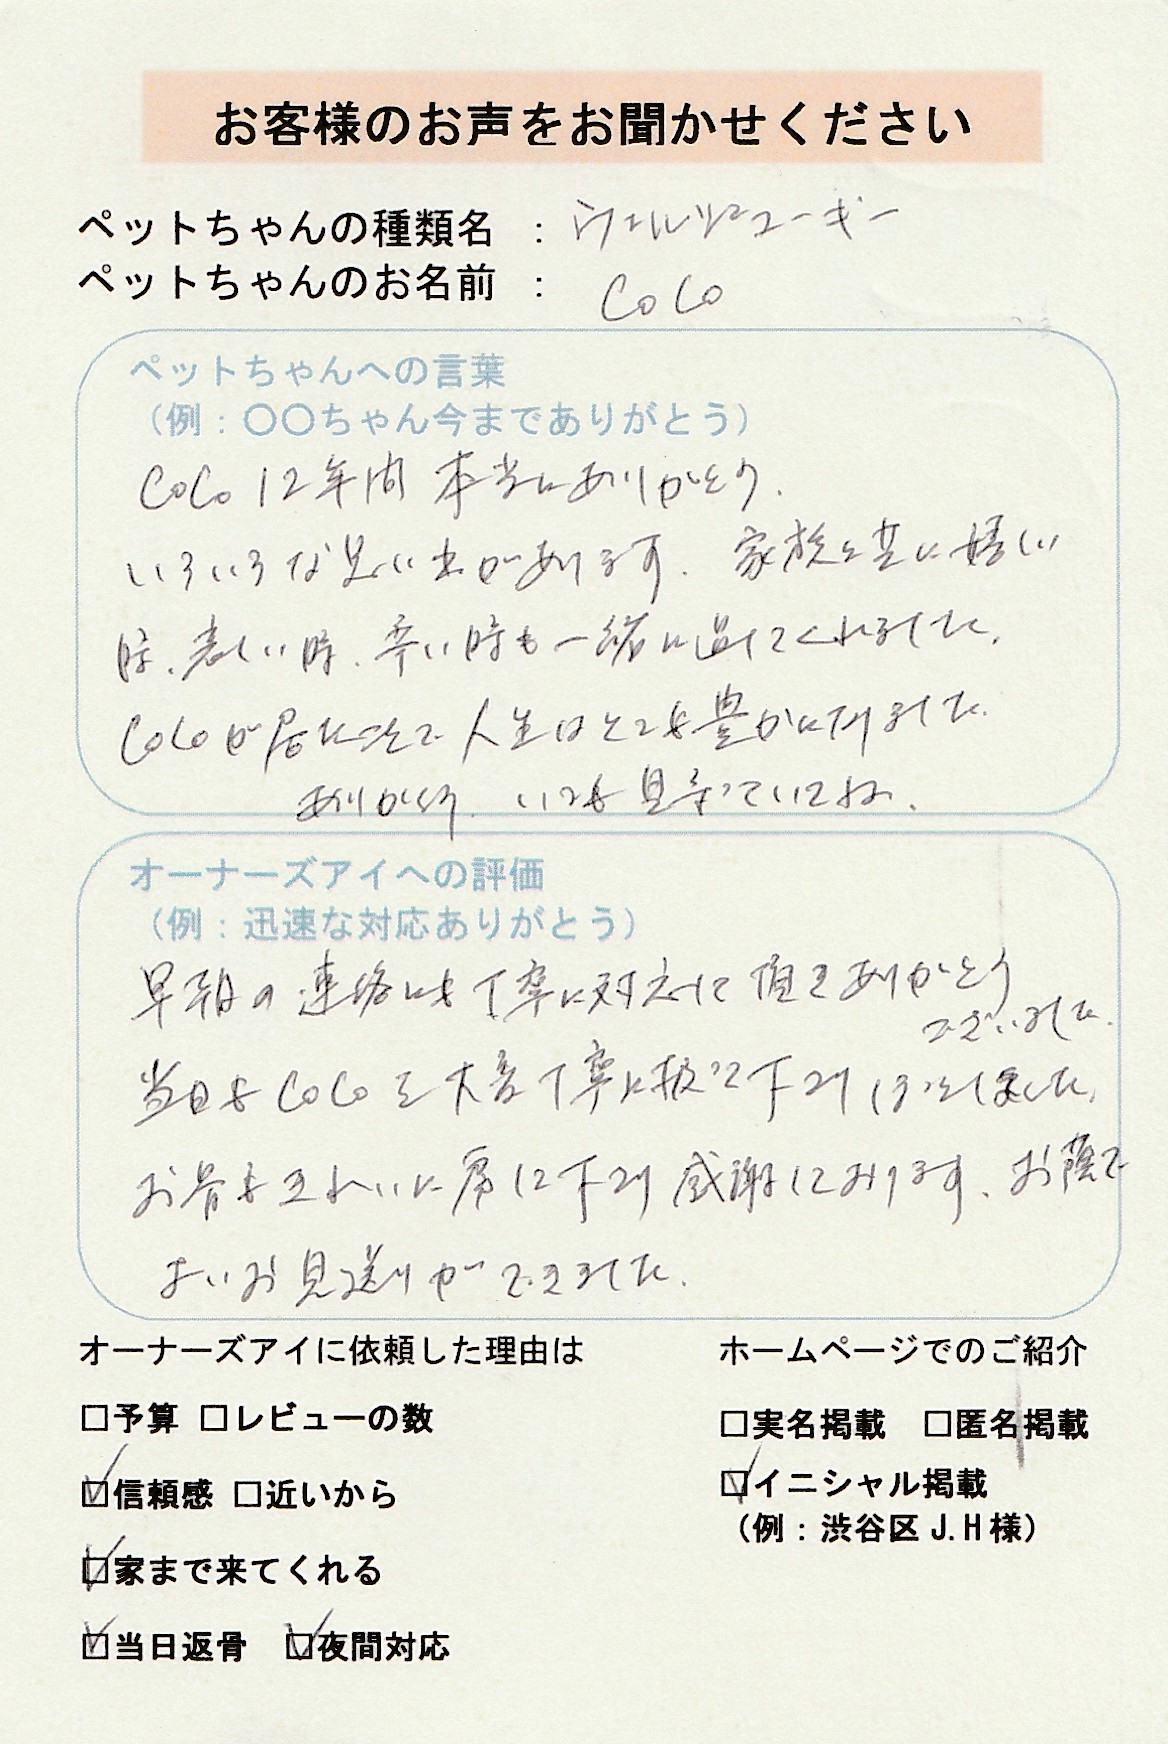 お客様のお声をお聞かせください
ペットちゃんの種類名 : ウェルシュコーギー
ペットちゃんのお名前 : CoCo
ペットちゃんへの言葉
（例：〇〇ちゃん今までありがとう）
CoCo 12年間 本当にありがとう.
いろいろな思い出があります. 家族と共に嬉しい
時、悲しい時、辛い時も一緒に過してくれました.
CoCoが居たことで 人生はとても豊かになりました.
ありがとう. いつも見守っていてね.
オーナーズアイへの評価
（例：迅速な対応ありがとう）
早朝の連絡にも丁寧に対応して頂きありがとう
ございました.
当日もCoCoを大変丁寧に扱って下さりほっとしました.
お骨もきれいに席して下さり感謝しております. お蔭で
よいお見送りができました.
オーナーズアイに依頼した理由は
□予算 □レビューの数
☑信頼感 □近いから
☑家まで来てくれる
☑当日返骨 ☑夜間対応
ホームページでのご紹介
□実名掲載 □匿名掲載
☑イニシャル掲載
（例：渋谷区 J.H 様）